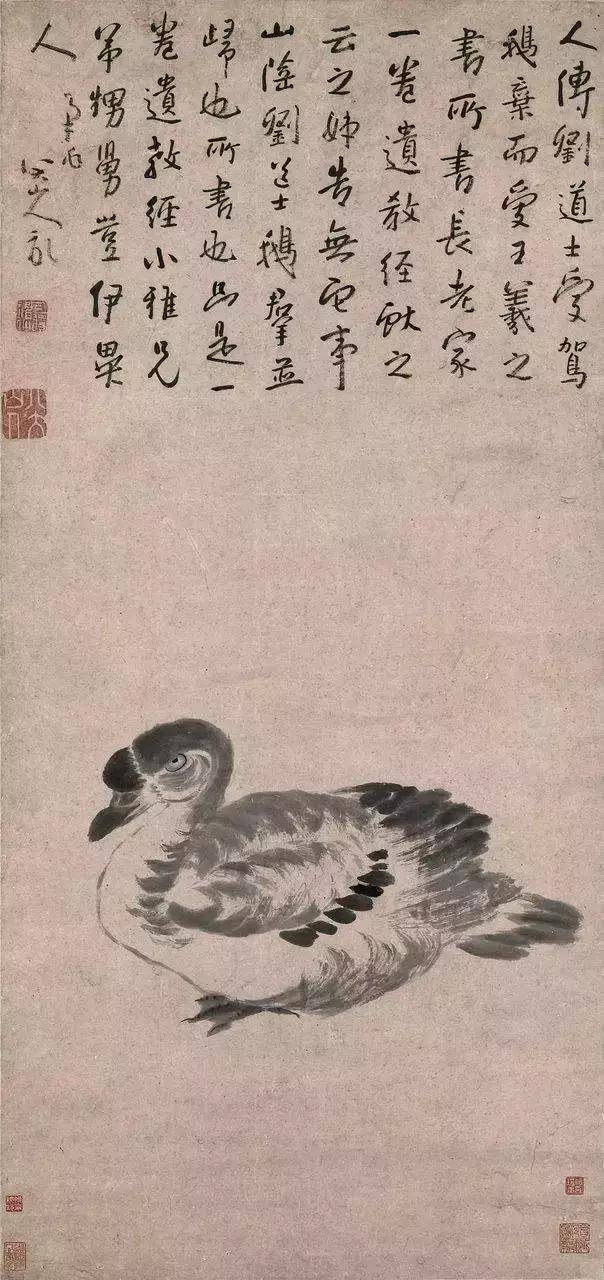 人傳劉道士受駕
鵝棄而愛王羲之
書所書長老家
一卷遺教經獻之
云之姊告無它事
山陰劉道士鵝羣並
歸也所書也只是一
卷遺教經小雅兄
弟甥舅豈伊異
人
八大山人記